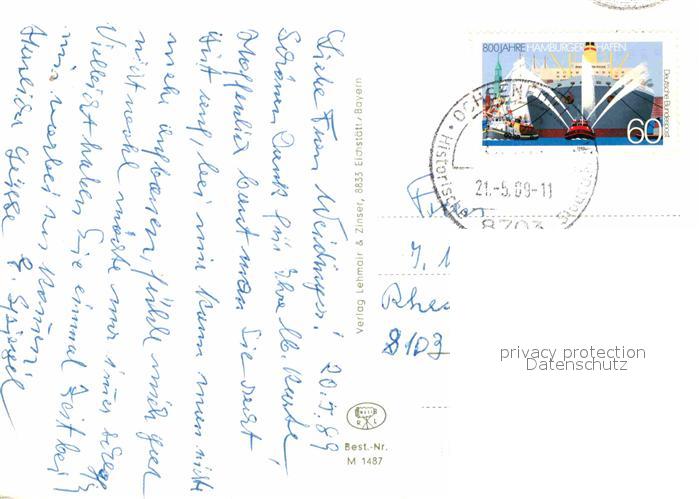 Liebe Frau Weidinger! 20.5.89
Schönen Dank für Ihre lb. Karte,
Hoffentlich baut man Sie recht
auf, bei mir kann man nicht
mehr aufbauen, fühle mich gar
nicht wohl möchte nur immer
Vielleicht haben Sie einmal Zeit bei
mir vorbei zu kommen!
Herzliche Grüsse
Verlag Lehmair & Zinser, 8833 Eichstätt/Bayern
Best.-Nr.
M 1487
800 JAHRE HAMBURGER HAFEN
Deutsche Bundespost
60
21.-5.89-11
8703
Frau
Rhe
8103
privacy protection
Datenschutz